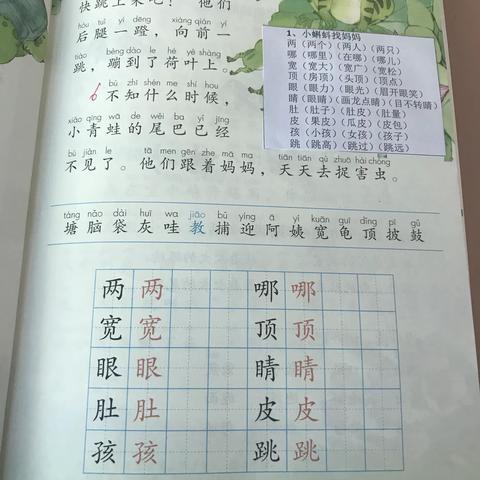 快跳上来吧！”他们
hòu tuǐ yì dēng xiàng qián yí
后腿一蹬，向前一
tiào bèng dào le hé yè shàng
跳，蹦到了荷叶上。
6 bù zhī shén me shí hou
不知什么时候，
xiǎo qīng wā de wěi ba yǐ jīng
小青蛙的尾巴已经
bú jiàn le tā men gēn zhe mā ma tiān tiān qù zhuō hài chóng
不见了。他们跟着妈妈，天天去捉害虫。
1、小蝌蚪找妈妈
两（两个）（两人）（两只）
哪（哪里）（在哪）（哪儿）
宽（宽大）（宽广）（宽松）
顶（房顶）（头顶）（顶点）
眼（眼力）（眼光）（眉开眼笑）
睛（眼睛）（画龙点睛）（目不转睛）
肚（肚子）（肚皮）（肚量）
皮（果皮）（瓜皮）（皮包）
孩（小孩）（女孩）（孩子）
跳（跳高）（跳过）（跳远）
táng nǎo dài huī wa jiāo bǔ yíng ā yí kuān guī dǐng pī gǔ
塘脑袋灰哇教捕迎阿姨宽龟顶披鼓
两两 哪哪
宽宽 顶顶
眼眼 睛睛
肚肚 皮皮
孩孩 跳跳